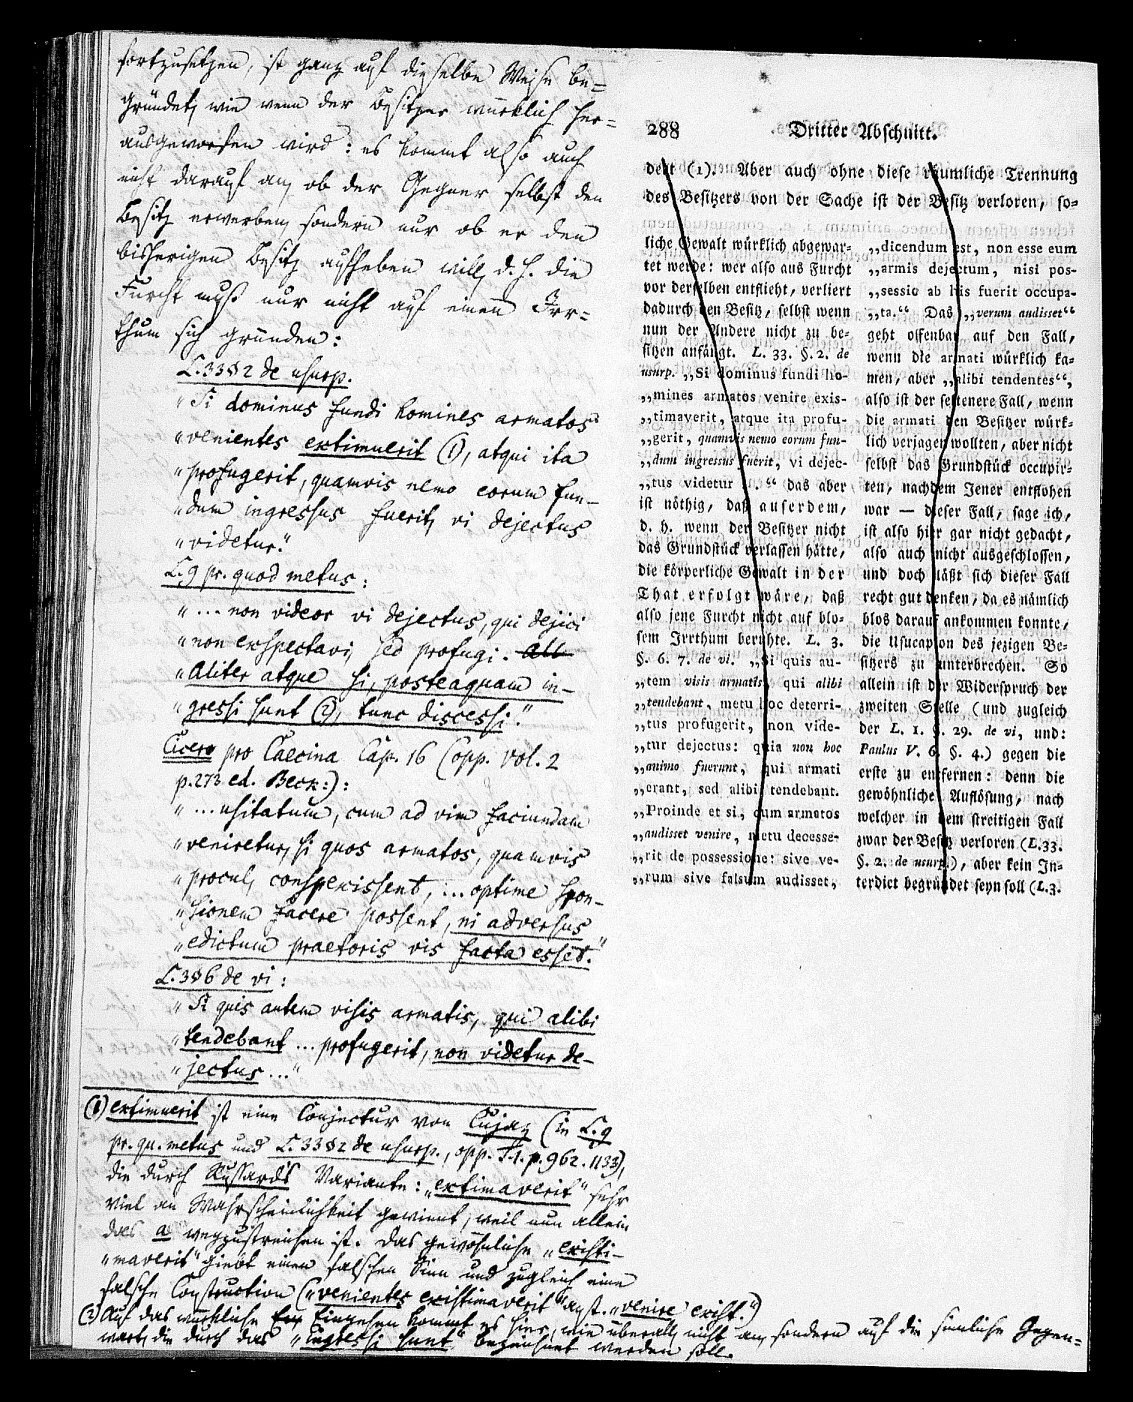 fortzusetzen, ist ganz auf dieselbe Weise be=
gründet, wie wenn der Besitzer würklich her=
ausgeworfen wird: es kommt also auch
nicht darauf an, ob der Gegner selbst den
Besitz erwerben, sondern nur ob er den
bisherigen Besitz aufheben will, d. h. die
Furcht muß nur nicht auf einen Irr=
thum sich gründen:
L. 33 § 2 de usurp.
„Si dominus fundi homines armatos
„venientes extimuerit (1), atqui ita
„profugerit, quamvis nemo eorum fun-
„dum ingressus fuerit, vi dejectus
„videtur.“
L. 9 pr. quod metus:
„... non videor vi dejectus, qui dejici
„non exspectavi, sed profugi. All
„Aliter atque si, posteaquam in-
„gressi sunt (2), tunc discessi.“
Cicero pro Caecina Cap. 16 (opp. vol. 2
p. 273 ed. Beck.):
„... usitatum, cum ad vim faciundam
„veniretur, si quos armatos, quamvis
„procul, conspexissent, ... optime spon-
„sionem facere possent, ni adversus
„edictum praetoris vis facta esset.“
L. 3 § 6 de vi:
„Si quis autem visis armatis, qui alibi
„tendebant ... profugerit, non videtur de-
„jectus ...“
(1) extimuerit ist eine Conjectur von Cujaz (in L. 9
pr. qu. metus und L. 33 § 2 de usurp., opp. T. 1. p. 962. 1133),
die durch Russards Variante: „extimaverit“ sehr
viel an Wahrscheinlichkeit gewinnt, weil nun allein
das a wegzustreichen ist. Das gewöhnliche „existi-
„maverit“ giebt einen falschen Sinn und zugleich eine
falsche Construction („venientes existimaverit“ anst. „venire exist.“)
(2) Auf das würkliche Eingehen kommt es hier, wie überall, nicht an, sondern auf die sinnliche Gegen=
wart, die durch das „ingressi sunt“ bezeichnet werden soll.
288 Dritter Abschnitt.
dert (1). Aber auch ohne diese räumliche Trennung
des Besitzers von der Sache ist der Besitz verloren, so-
liche Gewalt würklich abgewar-
tet werde: wer also aus Furcht
vor derselben entflieht, verliert
dadurch den Besitz, selbst wenn
nun der Andere nicht zu be-
sitzen anfängt. L. 33. §. 2. de
usurp. „Si dominus fundi ho-
„mines armatos venire exis-
„timaverit, atque ita profu-
„gerit, quamvis nemo eorum fun-
„dum ingressus fuerit, vi dejec-
„tus videtur .“ das aber
ist nöthig, daß auserdem,
d. h. wenn der Besitzer nicht
das Grundstück verlassen hätte,
die körperliche Gewalt in der
That erfolgt wäre, daß
also jene Furcht nicht auf blo-
sem Irrthum beruhte. L. 3.
§. 6. 7. de vi. „Si quis au-
„tem visis armatis, qui alibi
„tendebant, metu hoc deterri-
„tus profugerit, non vide-
„tur dejectus: quia non hoc
„animo fuerunt, qui armati
„erant, sed alibi tendebant.
„Proinde et si, cum armatos
„audisset venire, metu decesse-
„rit de possessione: sive ve-
„rum sive falsum audisset,
„dicendum est, non esse eum
„armis dejectum, nisi pos-
„sessio ab his fuerit occupa-
„ta.“ Das „verum audisset“
geht offenbar auf den Fall,
wenn die armati würklich ka-
men, aber „alibi tendentes“,
also ist der seltenere Fall, wenn
die armati den Besitzer würk-
lich verjagen wollten, aber nicht
selbst das Grundstück occupir-
ten, nachdem Jener entflohen
war — dieser Fall, sage ich,
ist also hier gar nicht gedacht,
also auch nicht ausgeschlossen,
und doch läßt sich dieser Fall
recht gut denken, da es nämlich
blos darauf ankommen konnte,
die Usucapion des jezigen Be-
sitzers zu unterbrechen. So
allein ist der Widerspruch der
zweiten Stelle (und zugleich
der L. 1. §. 29. de vi, und:
Paulus V. 6. §. 4.) gegen die
erste zu entfernen: denn die
gewöhnliche Auflösung, nach
welcher in dem streitigen Fall
zwar der Besitz verloren (L. 33.
§. 2. de usurp.), aber kein In-
terdict begründet seyn soll (L. 3.